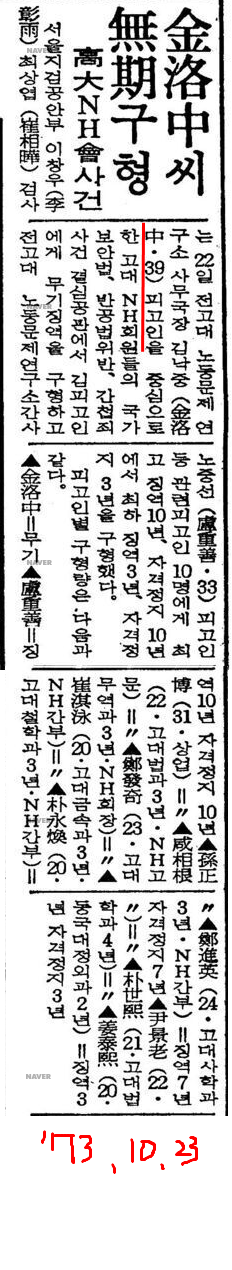 金洛中씨
無期구형
高大NH會사건
서울지검공안부 이창우(李
彰雨) 최상엽(崔相曄) 검사
는 22일 전고대 노동문제연
구소 사무국장 김낙중(金洛
中·39) 피고인을 중심으로
한 고대 NH회원들의 국가
보안법, 반공법위반, 간첩죄
사건 결심공판에서 김피고인
에게 무기징역을 구형하고
전고대 노동문제연구소간사
노중선(盧重善·33) 피고인
등 관련피고인 10명에게 최
고 징역10년, 자격정지 10년
에서 최하 징역3년, 자격정
지 3년을 구형했다.
피고인별 구형량은 다음과
같다.
▲金洛中=무기▲盧重善=징
역10년 자격정지 10년▲孫正
博(31·상업)=〃▲咸相根
(22·고대법과3년·NH고
문)=〃▲鄭發奇(23·고대
무역과3년·NH회장)=〃▲
崔淇泳(20·고대금속과3년·
NH간부)=〃▲朴永煥(20·
고대철학과3년·NH간부)=
〃▲鄭進英(24·고대사학과
3년·NH간부)=징역7년
자격정지7년▲尹景老(22·
〃)=〃▲朴世熙(21·고대법
학과4년)=〃▲姜泰熙(20·
동국대정외과2년)=징역3
년 자격정지3년
NAVER
NAVER
NAVER
NAVER
NAVER
'73. 10. 23